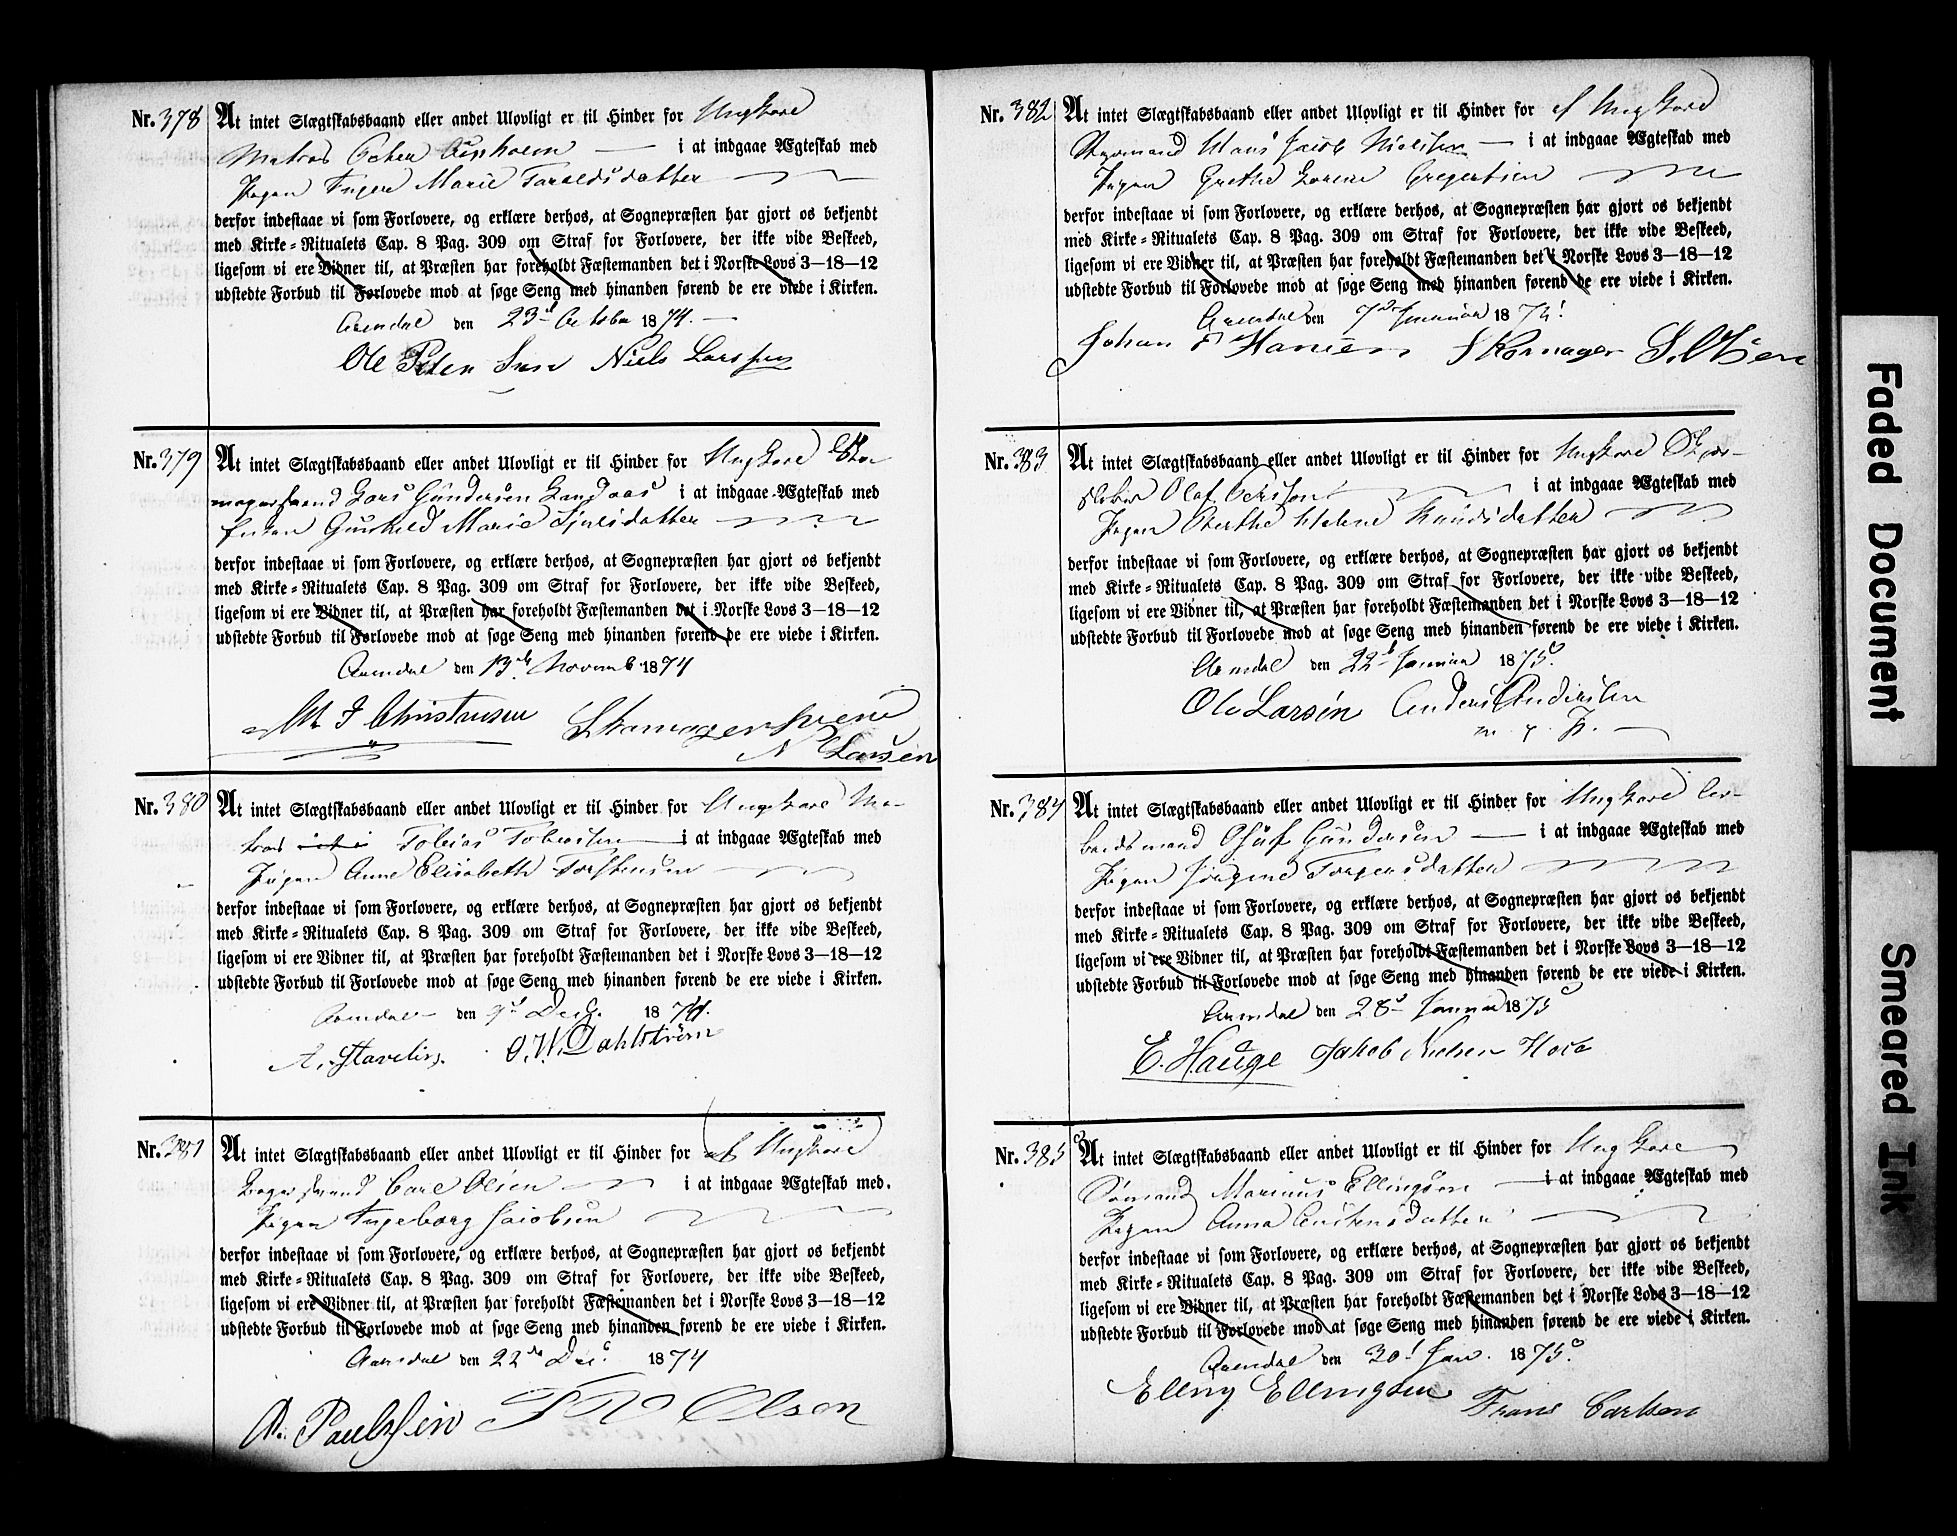 Nr. 378 At intet Slægtskabsbaand eller andet Ulovligt er til Hinder for Ungkarl
Matros Peter i at indgaae Ægteskab med
Pigen Inger Marie Taraldsdatter
derfor indestaae vi som Forlovere, og erklære derhos, at Sognepræsten har gjort os bekjendt
med Kirke-Ritualets Cap. 8 Pag. 309 om Straf for Forlovere, der ikke vide Beskeed,
ligesom vi ere Vidner til, at Præsten har foreholdt Fæstemanden det i Norske Lovs 3—18—12
udstedte Forbud til Forlovede mod at søge Seng med hinanden førend de ere viede i Kirken.
Arendal den 23d October 1874.
Ole Peter Niels Larssen
Nr. 379 At intet Slægtskabsbaand eller andet Ulovligt er til Hinder for Ungkarl Sko-
magersvend Lars Gundersen Landaas i at indgaae Ægteskab med
Enken Gunhild Marie Kjelsdatter
derfor indestaae vi som Forlovere, og erklære derhos, at Sognepræsten har gjort os bekjendt
med Kirke-Ritualets Cap. 8 Pag. 309 om Straf for Forlovere, der ikke vide Beskeed,
ligesom vi ere Vidner til, at Præsten har foreholdt Fæstemanden det i Norske Lovs 3—18—12
udstedte Forbud til Forlovede mod at søge Seng med hinanden førend de ere viede i Kirken.
Arendal den 13de Novemb 1874
M J Christensen Skomagersvend
N Larsen
Nr. 380 At intet Slægtskabsbaand eller andet Ulovligt er til Hinder for Ungkarl Ma-
tros Tobias Tobiassen i at indgaae Ægteskab med
Pigen Anne Elisabeth Torstensen
derfor indestaae vi som Forlovere, og erklære derhos, at Sognepræsten har gjort os bekjendt
med Kirke-Ritualets Cap. 8 Pag. 309 om Straf for Forlovere, der ikke vide Beskeed,
ligesom vi ere Vidner til, at Præsten har foreholdt Fæstemanden det i Norske Lovs 3—18—12
udstedte Forbud til Forlovede mod at søge Seng med hinanden førend de ere viede i Kirken.
Arendal den 9d Decb. 1874.
A. Stavelin. O. W. Dahlstrøm
Nr. 381 At intet Slægtskabsbaand eller andet Ulovligt er til Hinder for af Ungkarl
Bagersvend Carl Olsen i at indgaae Ægteskab med.
Pigen Ingeborg Jacobsen
derfor indestaae vi som Forlovere, og erklære derhos, at Sognepræsten har gjort os bekjendt
med Kirke-Ritualets Cap. 8 Pag. 309 om Straf for Forlovere, der ikke vide Beskeed,
ligesom vi ere Vidner til, at Præsten har foreholdt Fæstemanden det i Norske Lovs 3—18—12
udstedte Forbud til Forlovede mod at søge Seng med hinanden førend de ere viede i Kirken.
Arendal den 22de Dec. 1874
A. Paulssen Olsen
Nr. 382 At intet Slægtskabsbaand eller andet Ulovligt er til Hinder for af Ungkarl
Styrmand Hans Jacob Nielsen i at indgaae Ægteskab med
Pigen Grethe Lorene Gregertsen
derfor indestaae vi som Forlovere, og erklære derhos, at Sognepræsten har gjort os bekjendt
med Kirke-Ritualets Cap. 8 Pag. 309 om Straf for Forlovere, der ikke vide Beskeed,
ligesom vi ere Vidner til, at Præsten har foreholdt Fæstemanden det i Norske Lovs 3—18—12
udstedte Forbud til Forlovede mod at søge Seng med hinanden førend de ere viede i Kirken.
Arendal den 7d Januar 1875.
Johan Hansen Skomager S. Olsen
Nr. 383 At intet Slægtskabsbaand eller andet Ulovligt er til Hinder for Ungkarl
Olaf i at indgaae Ægteskab med
Pigen Berthe Helene Knudsdatter
derfor indestaae vi som Forlovere, og erklære derhos, at Sognepræsten har gjort os bekjendt
med Kirke-Ritualets Cap. 8 Pag. 309 om Straf for Forlovere, der ikke vide Beskeed,
ligesom vi ere Vidner til, at Præsten har foreholdt Fæstemanden det i Norske Lovs 3—18—12
udstedte Forbud til Forlovede mod at søge Seng med hinanden førend de ere viede i Kirken.
Arendal den 22d Januar 1875.
Ole Larsen Anders Andersen
m. p. P.
Nr. 384 At intet Slægtskabsbaand eller andet Ulovligt er til Hinder for Ungkarl Ar-
beidsmand Oluf Gundersen i at indgaae Ægteskab med
Pigen Jørgine Torgersdatter
derfor indestaae vi som Forlovere, og erklære derhos, at Sognepræsten har gjort os bekjendt
med Kirke-Ritualets Cap. 8 Pag. 309 om Straf for Forlovere, der ikke vide Beskeed,
ligesom vi ere Vidner til, at Præsten har foreholdt Fæstemanden det i Norske Lovs 3—18—12
udstedte Forbud til Forlovede mod at søge Seng med hinanden førend de ere viede i Kirken.
Arendal den 28d Januar 1875
E. Hauge Jakob Nielsen
Nr. 385 At intet Slægtskabsbaand eller andet Ulovligt er til Hinder for Ungkarl
Sømand Marinus Ellingsen i at indgaae Ægteskab med
Pigen Anna Austensdatter
derfor indestaae vi som Forlovere, og erklære derhos, at Sognepræsten har gjort os bekjendt
med Kirke-Ritualets Cap. 8 Pag. 309 om Straf for Forlovere, der ikke vide Beskeed,
ligesom vi ere Vidner til, at Præsten har foreholdt Fæstemanden det i Norske Lovs 3—18—12
udstedte Forbud til Forlovede mod at søge Seng med hinanden førend de ere viede i Kirken.
Arendal den 30d Jan. 1875.
Elling Ellingsen Frans Carlsen
Faded Document
Smeared Ink